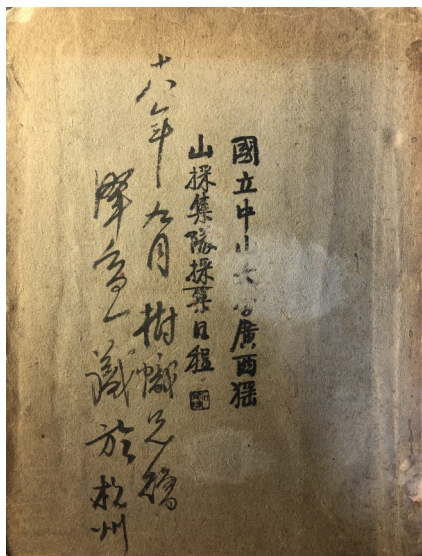 國立中山大學廣西猺
山採集隊採集日程
十八年九月樹幟兄贈
識於杭州